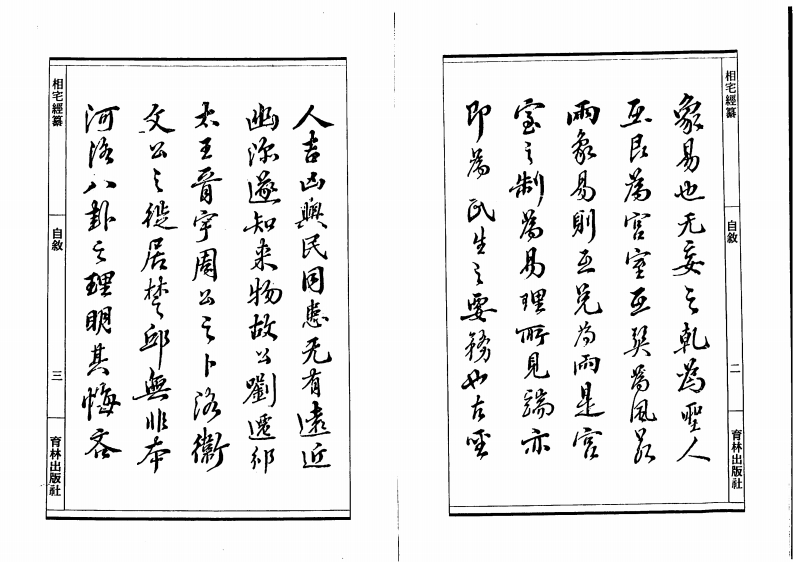 相宅經纂
自敘
二
育林出版社
象易也无妄之乾為聖人
互艮為宮室互巽為風故
兩象易則互兌為雨是宮
室之制為易理所見端亦
即為民生之要務也古聖
人吉凶與民同患无有遠近
幽深遂知來物故公劉遷邠
太王胥宇周公之卜洛衛
文公之徙居楚邱無非本
河洛八卦之理明其悔吝
相宅經纂
自敘
三
育林出版社